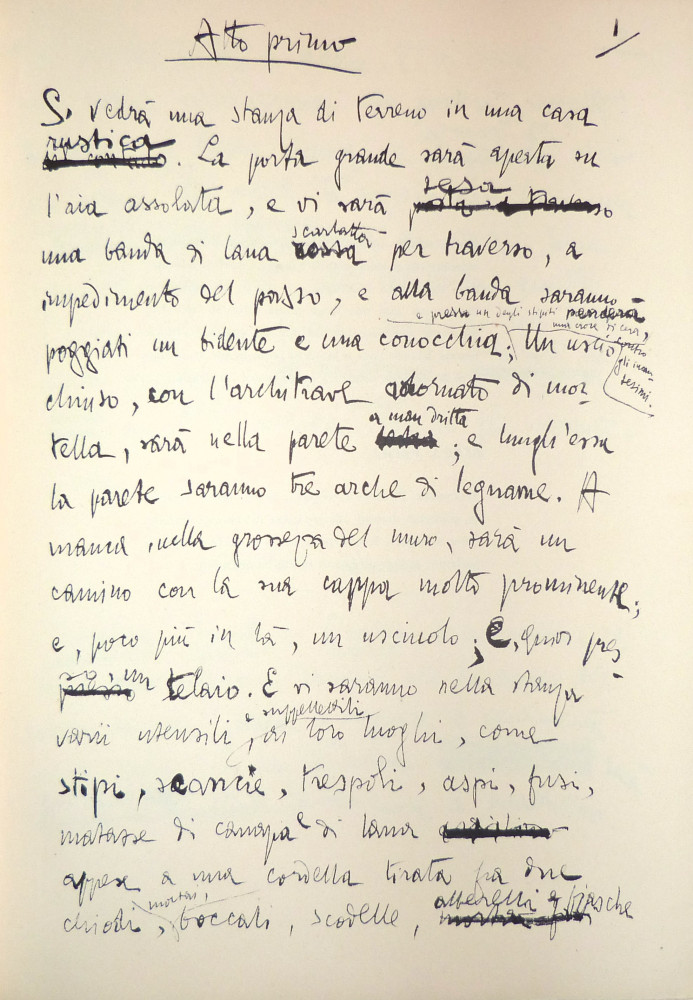 Atto primo
1
Si vedrà una stanza di terreno in una casa
rustica
. La porta grande sarà aperta su
l'aia assolata, e vi sarà
tesa
una banda di lana
scarlatta
rossa
per traverso, a
impedimento del passo, e alla banda saranno
e presso un degli stipiti penderà
una croce di cera,
contro
gli incan-
tesimi.
poggiati un bidente e una conocchia; Un uscio
chiuso, con l'architrave adornato di mor
a man dritta
tella, sarà nella parete
; e lungh'essa
la parete saranno tre arche di legname. A
manca, nella grossezza del muro, sarà un
camino con la sua cappa molto prominente;
e, poco più in là, un usciuolo; e, quasi pres
so, un
presso
telaio. E vi saranno nella stanza
e suppellettili
varii utensili, ai loro luoghi, come
stipi, scancie, trespoli, aspi, fusi,
matasse di canapa e di lana
appese a una cordella tirata fra due
mortai,
alberelli e fiasche
chiodi, boccali, scodelle,